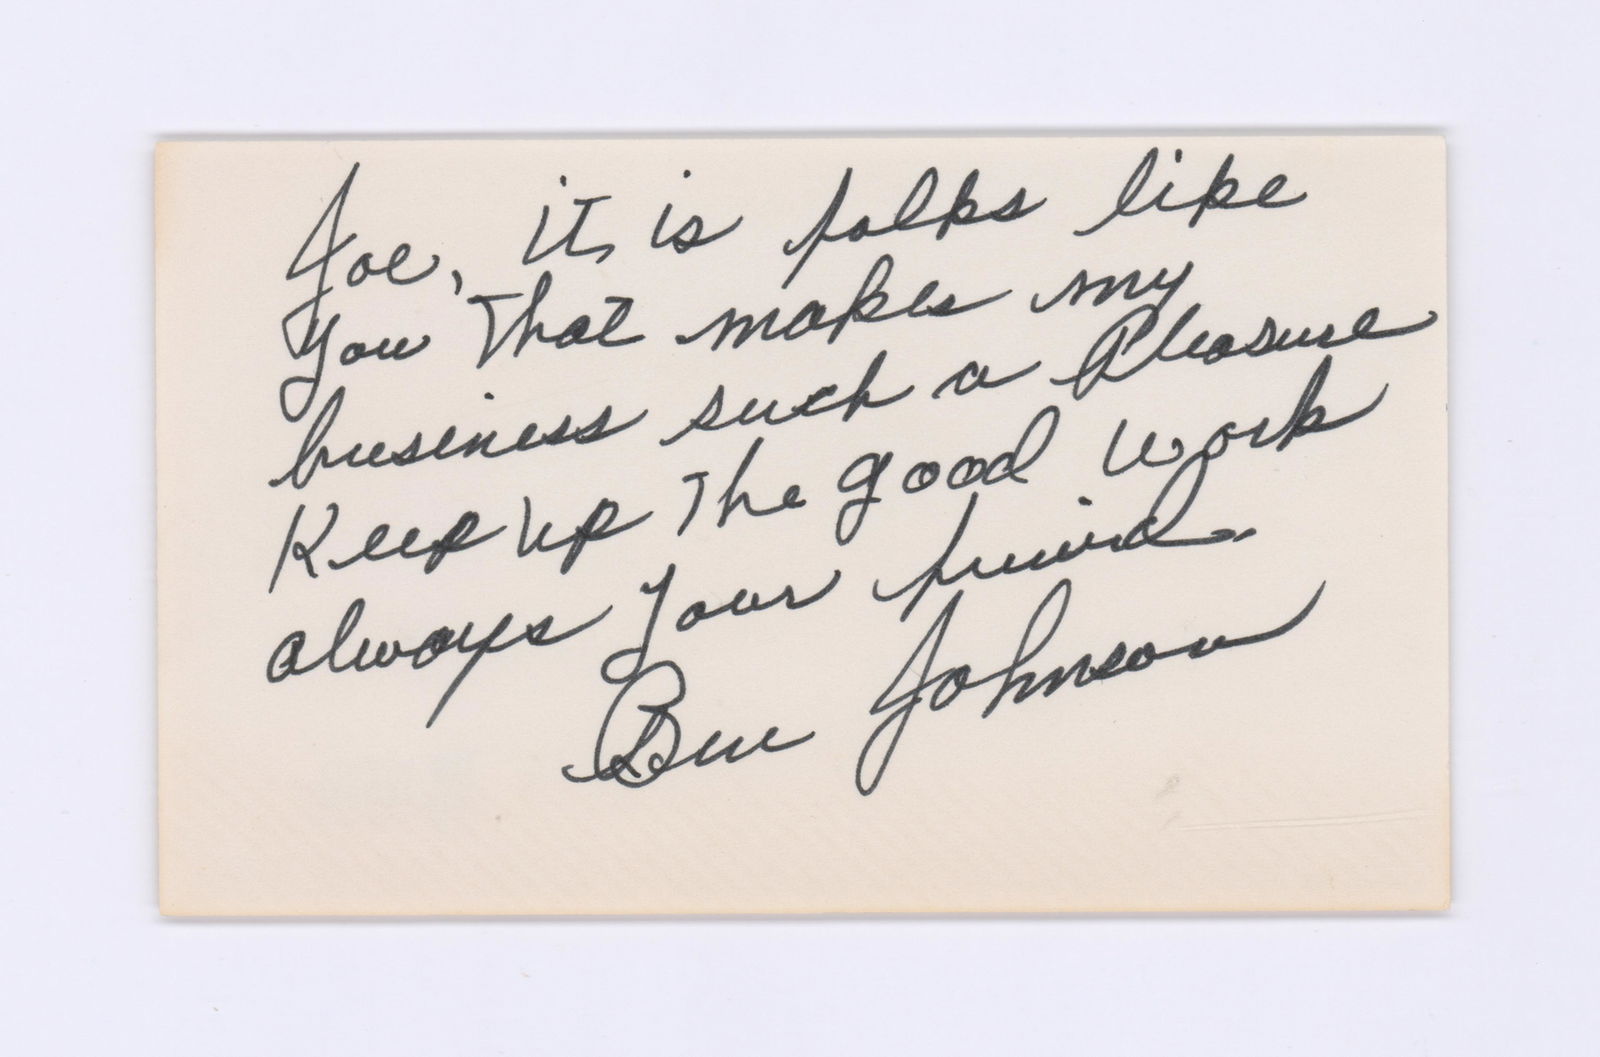 Joe, it is folks like
you that makes my
business such a Pleasure
Keep up the good work
always your friend.
Ben Johnson